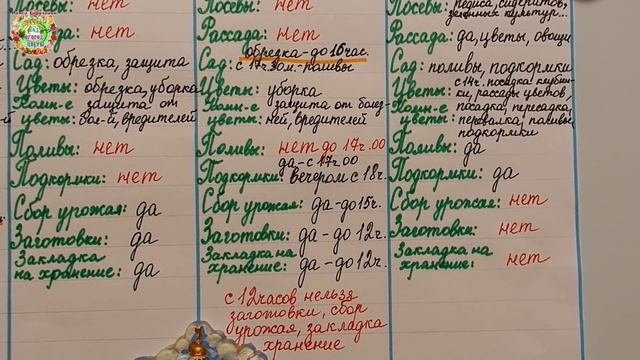 Посевы: нет
Рассада: нет
Сад: обрезка, защита
Цветы: обрезка, уборка
Комн-е защита от
цветы: бол-й, вредителей
Поливы: нет
Подкормки: нет
Сбор урожая: да
Заготовки: да
Закладка
на хранение: да
Посевы: нет
Рассада: нет
обрезка-до 16час.
Сад: с 17ч. ком.-поливы
Цветы: уборка
Комн-е защита от болез-
цветы: ней, вредителей
Поливы: нет до 17ч.00
да-с 17ч.00
Подкормки: вечером с 18ч.
Сбор урожая: да-до15ч.
Заготовки: да - до 12ч.
Закладка на
хранение: да - до12ч.
с 12часов нельзя
заготовки, сбор
урожая, закладка
хранение
Посевы: редиса, сидератов,
зеленных культур...
Рассада: да, цветы, овощи
Сад: поливы, подкормки
Цветы: посадка клубни-
ки, рассады цветов,
Комн-е посадка, пересадка,
цветы: перевалка, поливы,
подкормки
Поливы: да
Подкормки: да
Сбор урожая: нет
Заготовки: нет
Закладка на
хранение: нет